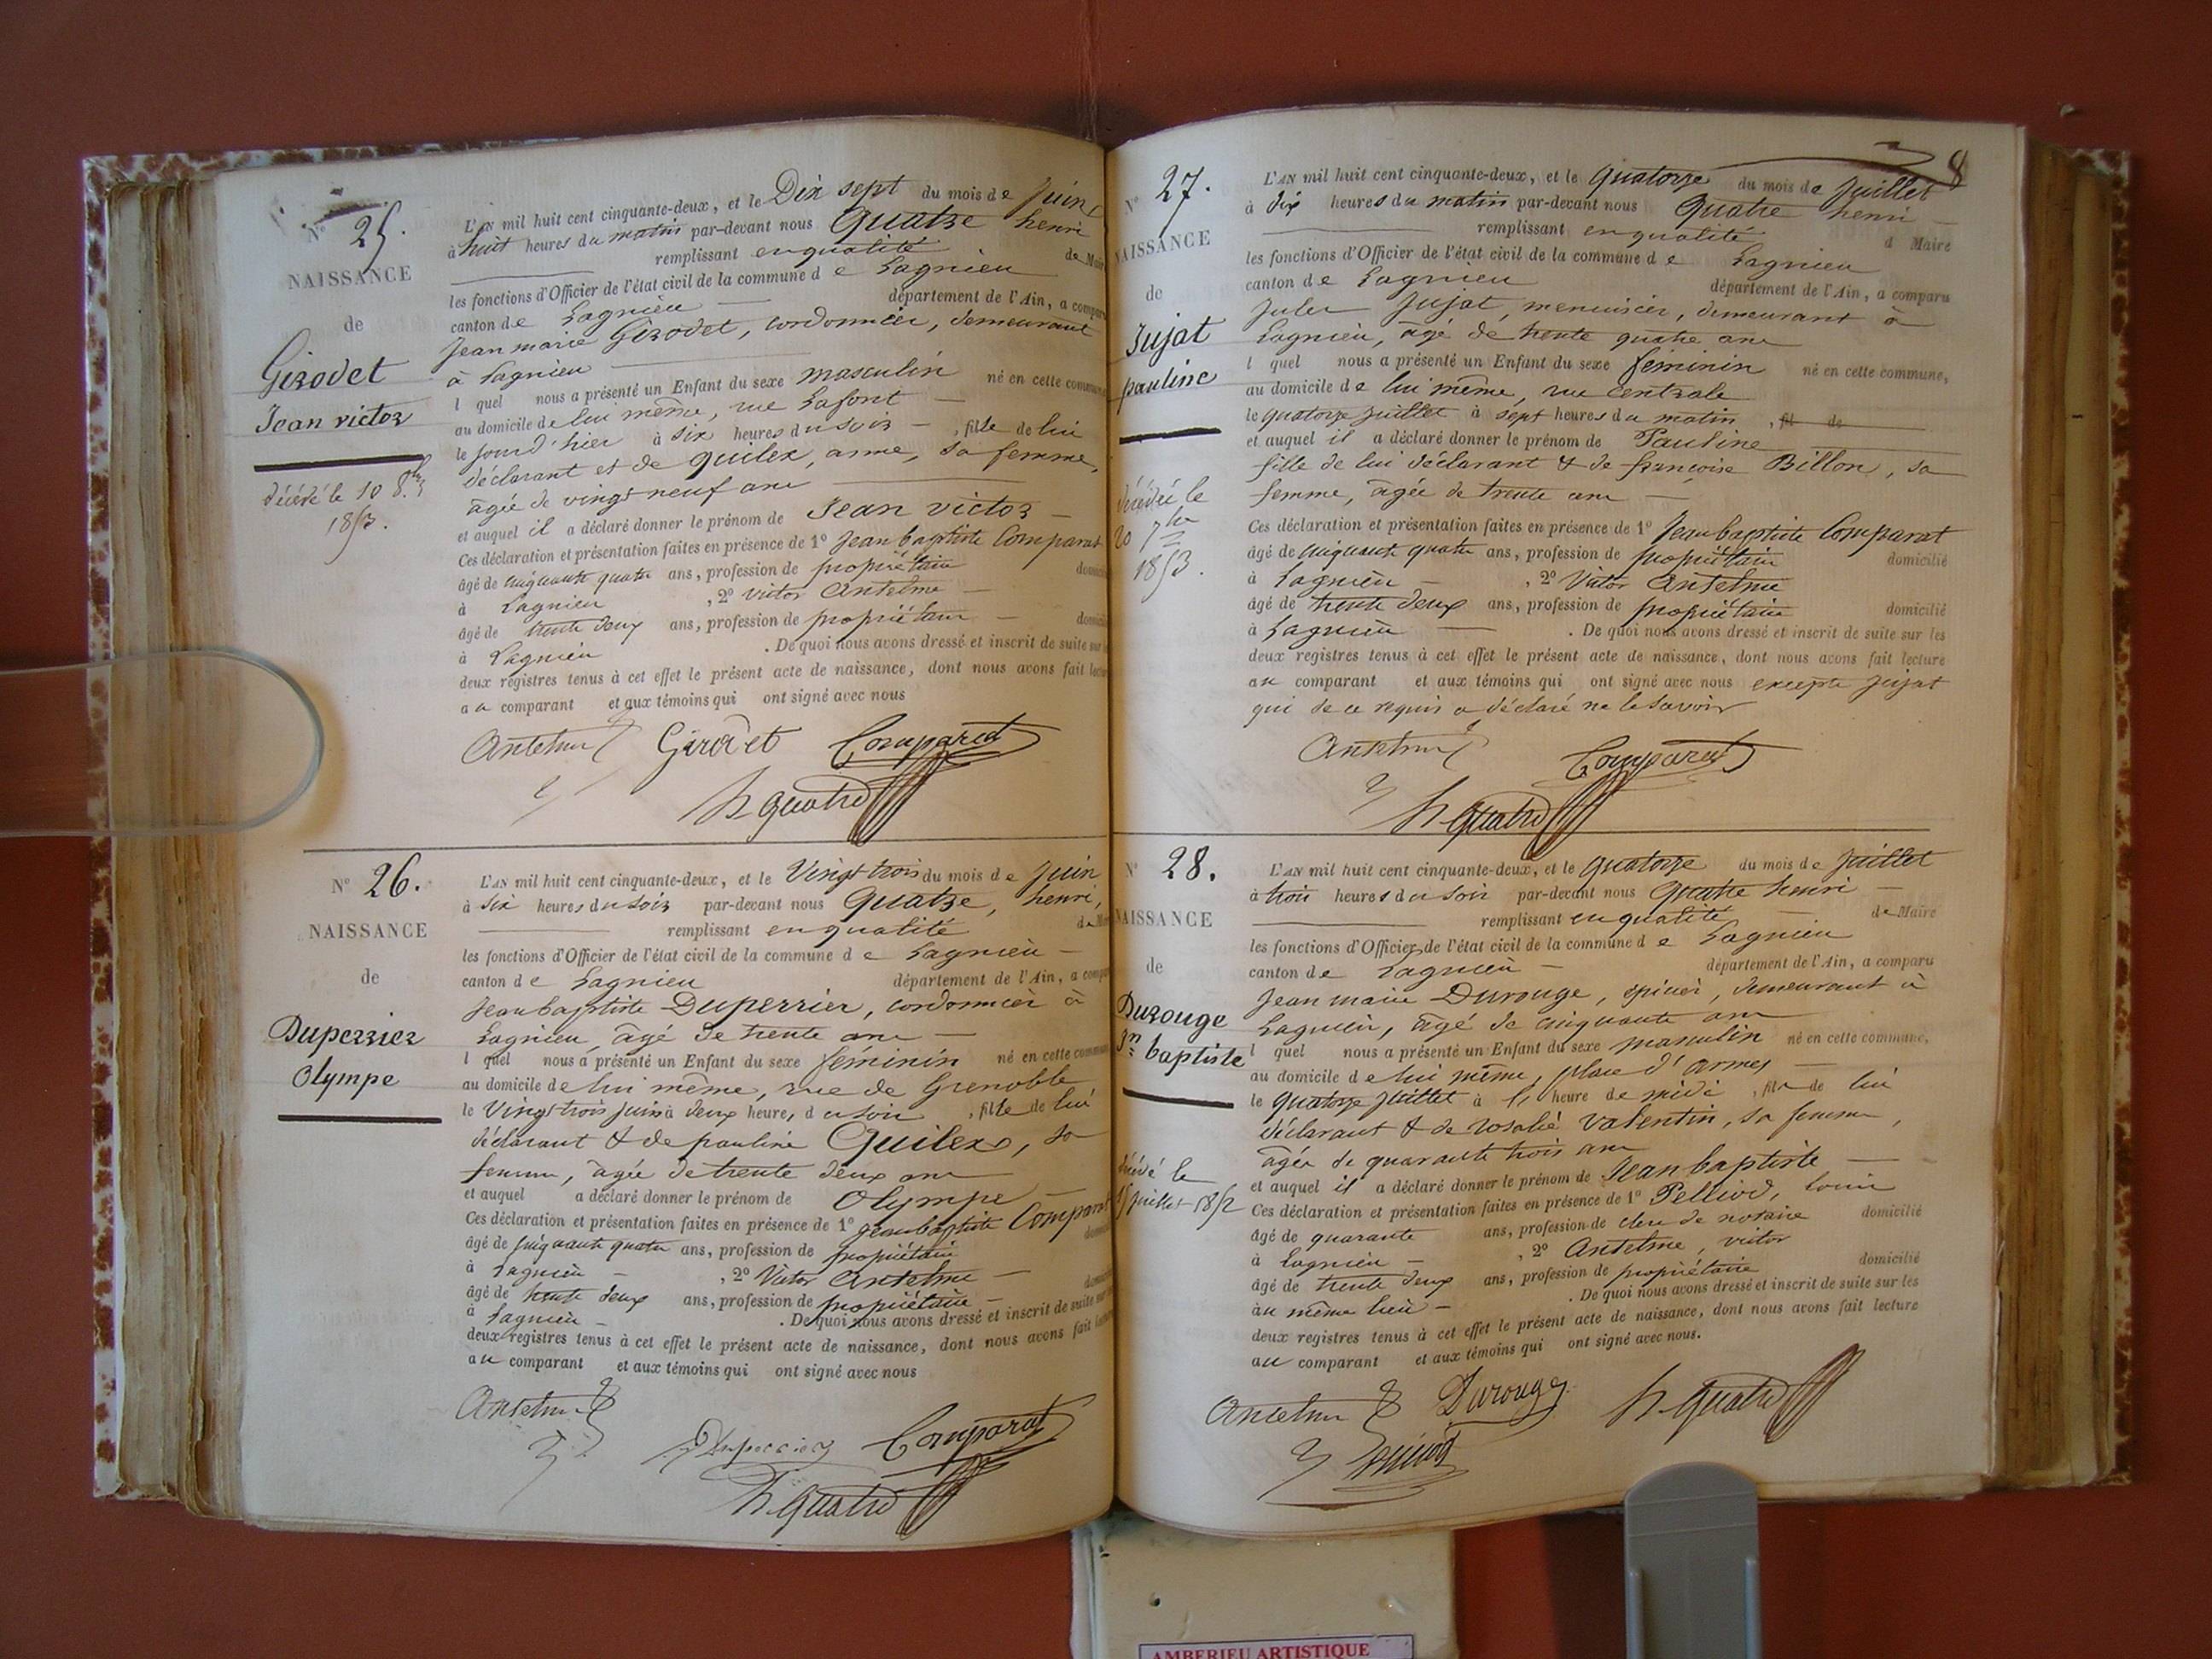 N° 25.
NAISSANCE
de
Girodet
Jean victor
décédé le 10 8bre
1853.
L'AN mil huit cent cinquante-deux, et le Dix sept du mois de Juin
à huit heures du matin par-devant nous Quatre henri
remplissant en qualité de Maire
les fonctions d'Officier de l'état civil de la commune de Lagnieu
canton de Lagnieu département de l'Ain, a comparu
Jean marie Girodet, cordonnier, demeurant
à Lagnieu
l quel nous a présenté un Enfant du sexe masculin né en cette commune
au domicile de lui même, rue Lafont
le jourd'hier à six heures du soir, fils de lui
déclarant et de quilex, anne, sa femme,
âgée de vingt neuf ans
et auquel il a déclaré donner le prénom de Jean victor
Ces déclaration et présentation faites en présence de 1° Jean baptiste Comparat
âgé de cinquante quatre ans, profession de propriétaire
à Lagnieu, 2° Victor Anselme
âgé de trente deux ans, profession de propriétaire
à Lagnieu. De quoi nous avons dressé et inscrit de suite sur
deux registres tenus à cet effet le présent acte de naissance, dont nous avons fait lecture
au comparant et aux témoins qui ont signé avec nous
Anselme Girodet Comparat
h quatre
N° 26.
NAISSANCE
de
Duperrier
Olympe
L'AN mil huit cent cinquante-deux, et le Vingt trois du mois de Juin
à six heures du soir par-devant nous Quatre, henri,
remplissant en qualité
les fonctions d'Officier de l'état civil de la commune de Lagnieu
canton de Lagnieu département de l'Ain, a comparu
Jean baptiste Duperrier, cordonnier à
Lagnieu, âgé de trente ans
l quel nous a présenté un Enfant du sexe féminin né en cette commune
au domicile de lui même, rue de Grenoble
le Vingt trois juin à deux heures du soir, fille de lui
déclarant & de pauline Quilex, sa
femme, âgée de trente deux ans
et auquel a déclaré donner le prénom de Olympe
Ces déclaration et présentation faites en présence de 1° Jean baptiste Comparat
âgé de cinquante quatre ans, profession de propriétaire
à Lagnieu, 2° Victor Anselme
âgé de trente deux ans, profession de propriétaire
à Lagnieu. De quoi nous avons dressé et inscrit de suite sur
deux registres tenus à cet effet le présent acte de naissance, dont nous avons fait lecture
au comparant et aux témoins qui ont signé avec nous
Anselme
Duperrier Comparat
h quatre
8
N° 27.
NAISSANCE
de
Jujat
pauline
décédée le
20 7bre
1853.
L'AN mil huit cent cinquante-deux, et le Quatorze du mois de Juillet
à dix heures du matin par-devant nous Quatre henri
remplissant en qualité d Maire
les fonctions d'Officier de l'état civil de la commune de Lagnieu
canton de Lagnieu département de l'Ain, a comparu
Jules Jujat, menuisier, demeurant à
Lagnieu, âgé de trente quatre ans
l quel nous a présenté un Enfant du sexe féminin né en cette commune,
au domicile de lui même, rue centrale
le quatorze juillet à sept heures du matin, fil de
et auquel il a déclaré donner le prénom de Pauline
fille de lui déclarant & de françoise Billon, sa
femme, âgée de trente ans
Ces déclaration et présentation faites en présence de 1° Jean baptiste Comparat
âgé de cinquante quatre ans, profession de propriétaire domicilié
à Lagnieu, 2° Victor Anselme
âgé de trente deux ans, profession de propriétaire domicilié
à Lagnieu. De quoi nous avons dressé et inscrit de suite sur les
deux registres tenus à cet effet le présent acte de naissance, dont nous avons fait lecture
au comparant et aux témoins qui ont signé avec nous excepté Jujat
qui de ce requis a déclaré ne le savoir
Anselme Comparat
h quatre
N° 28.
NAISSANCE
de
Durouge
Jn baptiste
décédé le
15 juillet 1852
L'AN mil huit cent cinquante-deux, et le Quatorze du mois de Juillet
à trois heures du soir par-devant nous Quatre henri
remplissant en qualité de Maire
les fonctions d'Officier de l'état civil de la commune de Lagnieu
canton de Lagnieu département de l'Ain, a comparu
Jean marie Durouge, épicier, demeurant à
Lagnieu, âgé de cinquante ans
l quel nous a présenté un Enfant du sexe masculin né en cette commune,
au domicile de lui même, place d'armes
le quatorze juillet à heure de midi, fils de lui
déclarant & de rosalie Valentin, sa femme,
âgée de quarante trois ans
et auquel il a déclaré donner le prénom de Jean baptiste
Ces déclaration et présentation faites en présence de 1° Pelliod, louis
âgé de quarante ans, profession de clerc de notaire domicilié
à Lagnieu, 2° Anselme, victor
âgé de trente deux ans, profession de propriétaire domicilié
au même lieu. De quoi nous avons dressé et inscrit de suite sur les
deux registres tenus à cet effet le présent acte de naissance, dont nous avons fait lecture
au comparant et aux témoins qui ont signé avec nous.
Anselme Durouge h quatre
AMBERIEU ARTISTIQUE